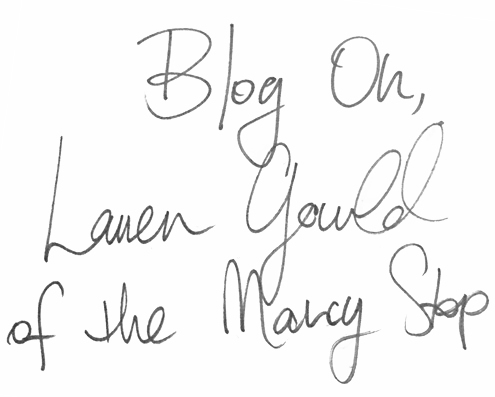 Blog On,
Lauren Gould
of the Marcy Stop